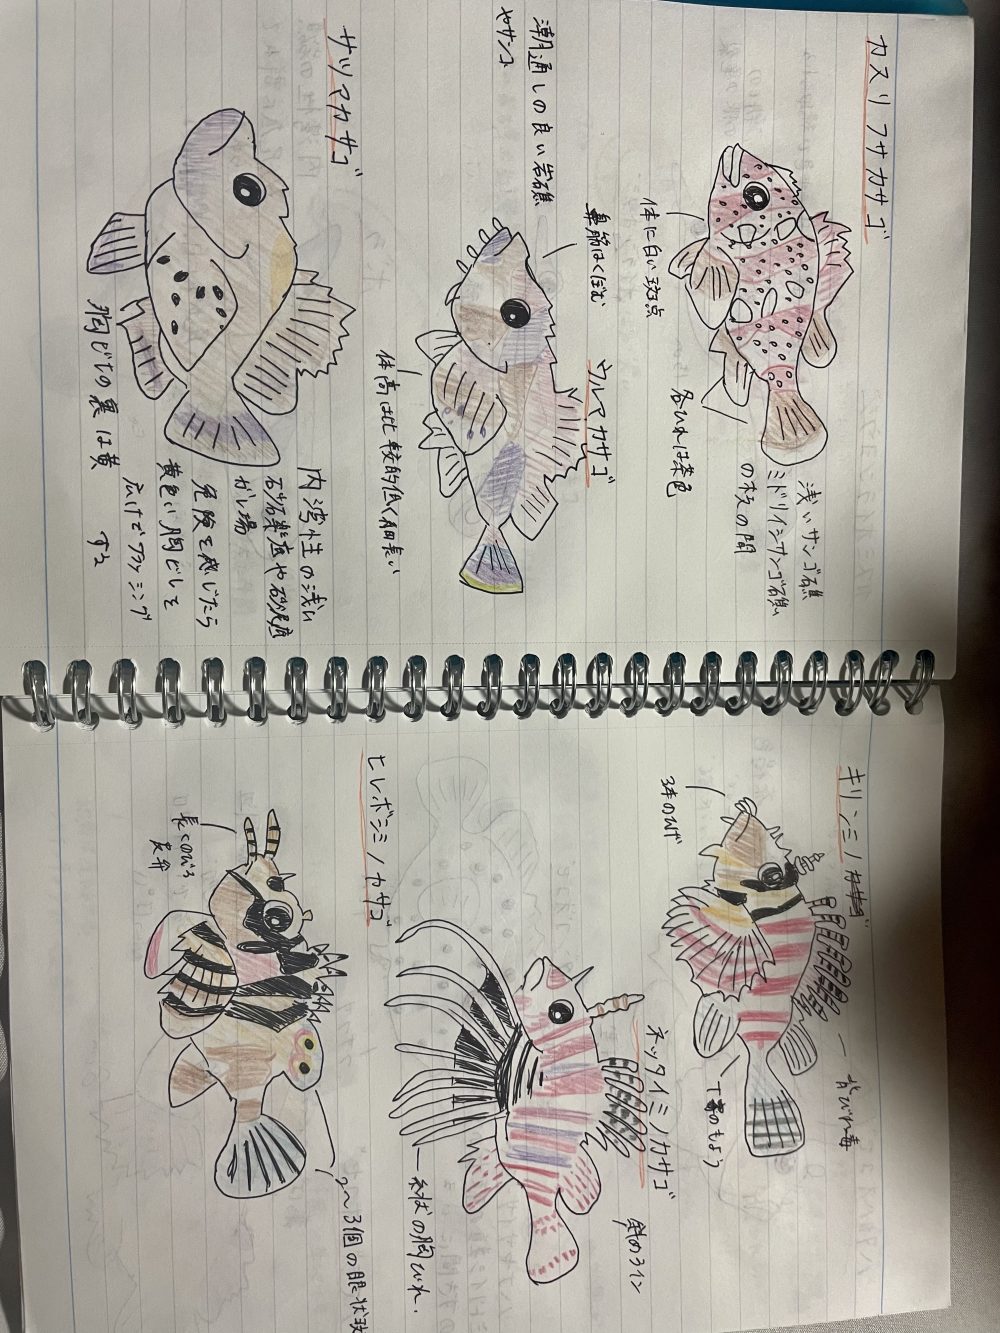 カスリフサカサゴ
体に白い斑点
各ひれは茶色
浅いサンゴ礁
ミドリイシサンゴ礁
の枝の間
ウルマカサゴ
鼻筋はくぼむ
潮通しの良い岩礁
やサンゴ
体高は比較的低く細長い
サツマカサゴ
内湾性の浅い
砂礫底や砂泥底
ガレ場
危険を感じたら
黄色い胸びれを
広げてフラッシング
する
胸びれの裏は黄
キリンミノ
3本のひげ
背びれ毒
T字のもよう
ネッタイミノカサゴ
斜めライン
糸状の胸びれ.
ヒレボシミノカサゴ
長くのびる
皮弁
2〜3個の眼状斑